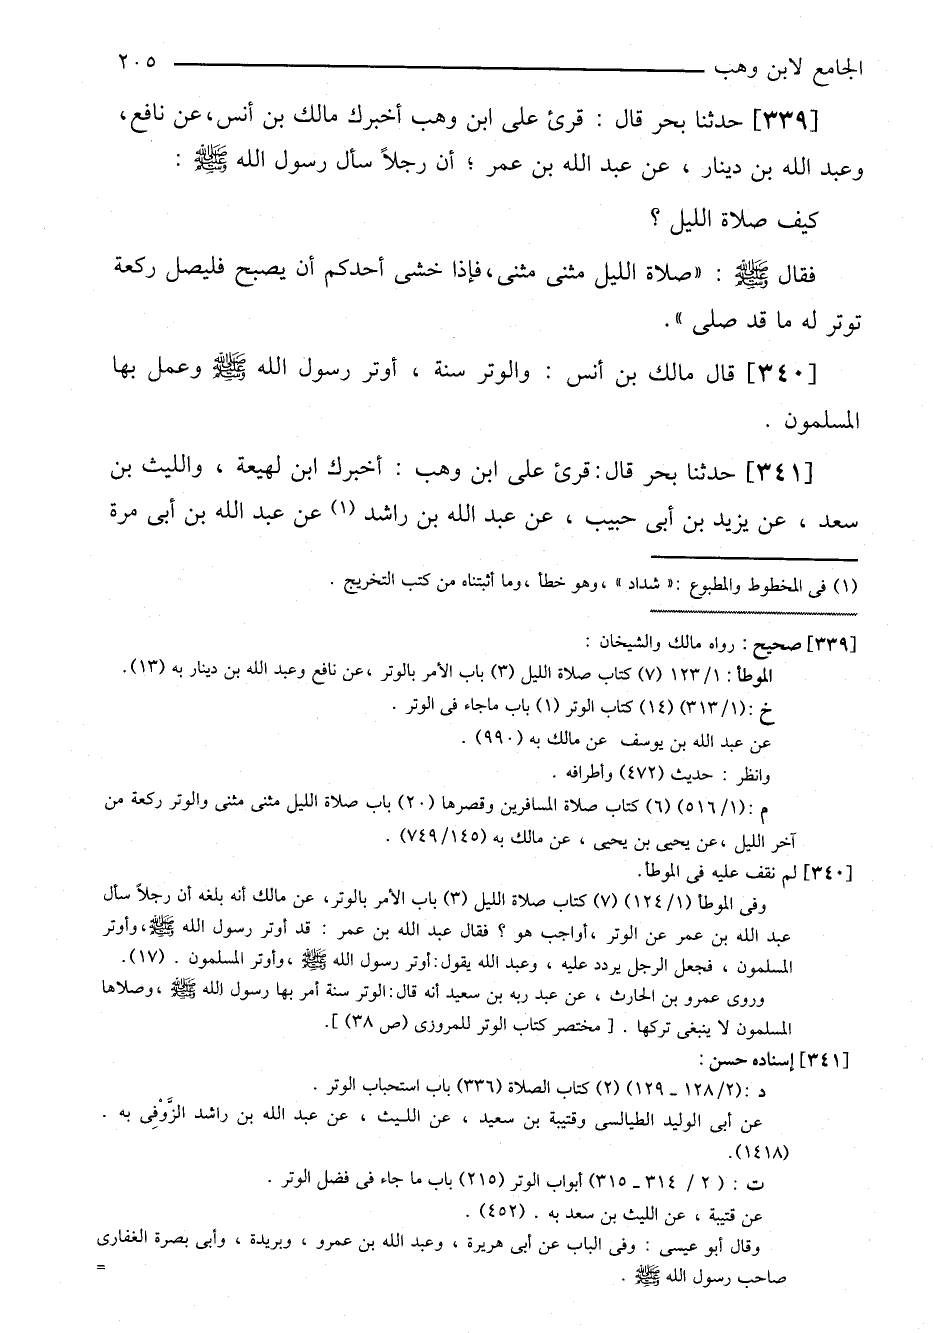 الجامع لابن وهب ٢٠٥
[٣٣٩] حدثنا بحر قال : قرئ على ابن وهب أخبرك مالك بن أنس،عن نافع،
وعبد الله بن دينار ، عن عبد الله بن عمر ؛ أن رجلاً سأل رسول الله ﷺ :
كيف صلاة الليل ؟
فقال ﷺ : «صلاة الليل مثنى مثنى،فإذا خشى أحدكم أن يصبح فليصل ركعة
توتر له ما قد صلى ».
[٣٤٠] قال مالك بن أنس : والوتر سنة ، أوتر رسول الله ﷺ وعمل بها
المسلمون .
[٣٤١] حدثنا بحر قال:قرئ على ابن وهب : أخبرك ابن لهيعة ، والليث بن
سعد ، عن يزيد بن أبى حبيب ، عن عبد الله بن راشد (١) عن عبد الله بن أبى مرة
(١) فى المخطوط والمطبوع :« شداد » ،وهو خطأ ،وما أثبتناه من كتب التخريج .
[٣٣٩] صحيح : رواه مالك والشيخان :
الموطأ : ١/ ١٢٣ (٧) كتاب صلاة الليل (٣) باب الأمر بالوتر ،عن نافع وعبد الله بن دينار به (١٣).
خ :(٣١٣/١) (١٤) كتاب الوتر (١) باب ماجاء فى الوتر .
عن عبد الله بن يوسف عن مالك به (٩٩٠) .
وانظر : حديث (٤٧٢) وأطرافه .
م :(١/ ٥١٦) (٦) كتاب صلاة المسافرين وقصرها (٢٠) باب صلاة الليل مثنى مثنى والوتر ركعة من
آخر الليل ،عن يحيى بن يحيى ، عن مالك به (٧٤٩/١٤٥) .
[٣٤٠] لم نقف عليه فى الموطأ.
وفى الموطأ (١/ ١٢٤) (٧) كتاب صلاة الليل (٣) باب الأمر بالوتر، عن مالك أنه بلغه أن رجلاً سأل
عبد الله بن عمر عن الوتر ،أواجب هو ؟ فقال عبد الله بن عمر : قد أوتر رسول الله ﷺ،وأوتر
المسلمون ، فجعل الرجل يردد عليه ، وعبد الله يقول:أوتر رسول الله ﷺ ،وأوتر المسلمون . (١٧).
وروى عمرو بن الحارث ، عن عبد ربه بن سعيد أنه قال:الوتر سنة أمر بها رسول الله ﷺ ،وصلاها
المسلمون لا ينبغى تركها . [ مختصر كتاب الوتر للمروزى (ص ٣٨) ].
[٣٤١] إسناده حسن :
د :(٢/ ١٢٨ ـ ١٢٩) (٢) كتاب الصلاة (٣٣٦) باب استحباب الوتر .
عن أبى الوليد الطيالسى وقتيبة بن سعيد ، عن الليث ، عن عبد الله بن راشد الزَّوْفِى به .
(١٤١٨).
ت : ( ٢ / ٣١٤ ـ ٣١٥) أبواب الوتر (٢١٥) باب ما جاء فى فضل الوتر .
عن قتيبة ، عن الليث بن سعد به . (٤٥٢) .
وقال أبو عيسى : وفى الباب عن أبى هريرة ، وعبد الله بن عمرو ، وبريدة ، وأبى بصرة الغفارى
صاحب رسول الله ﷺ . =